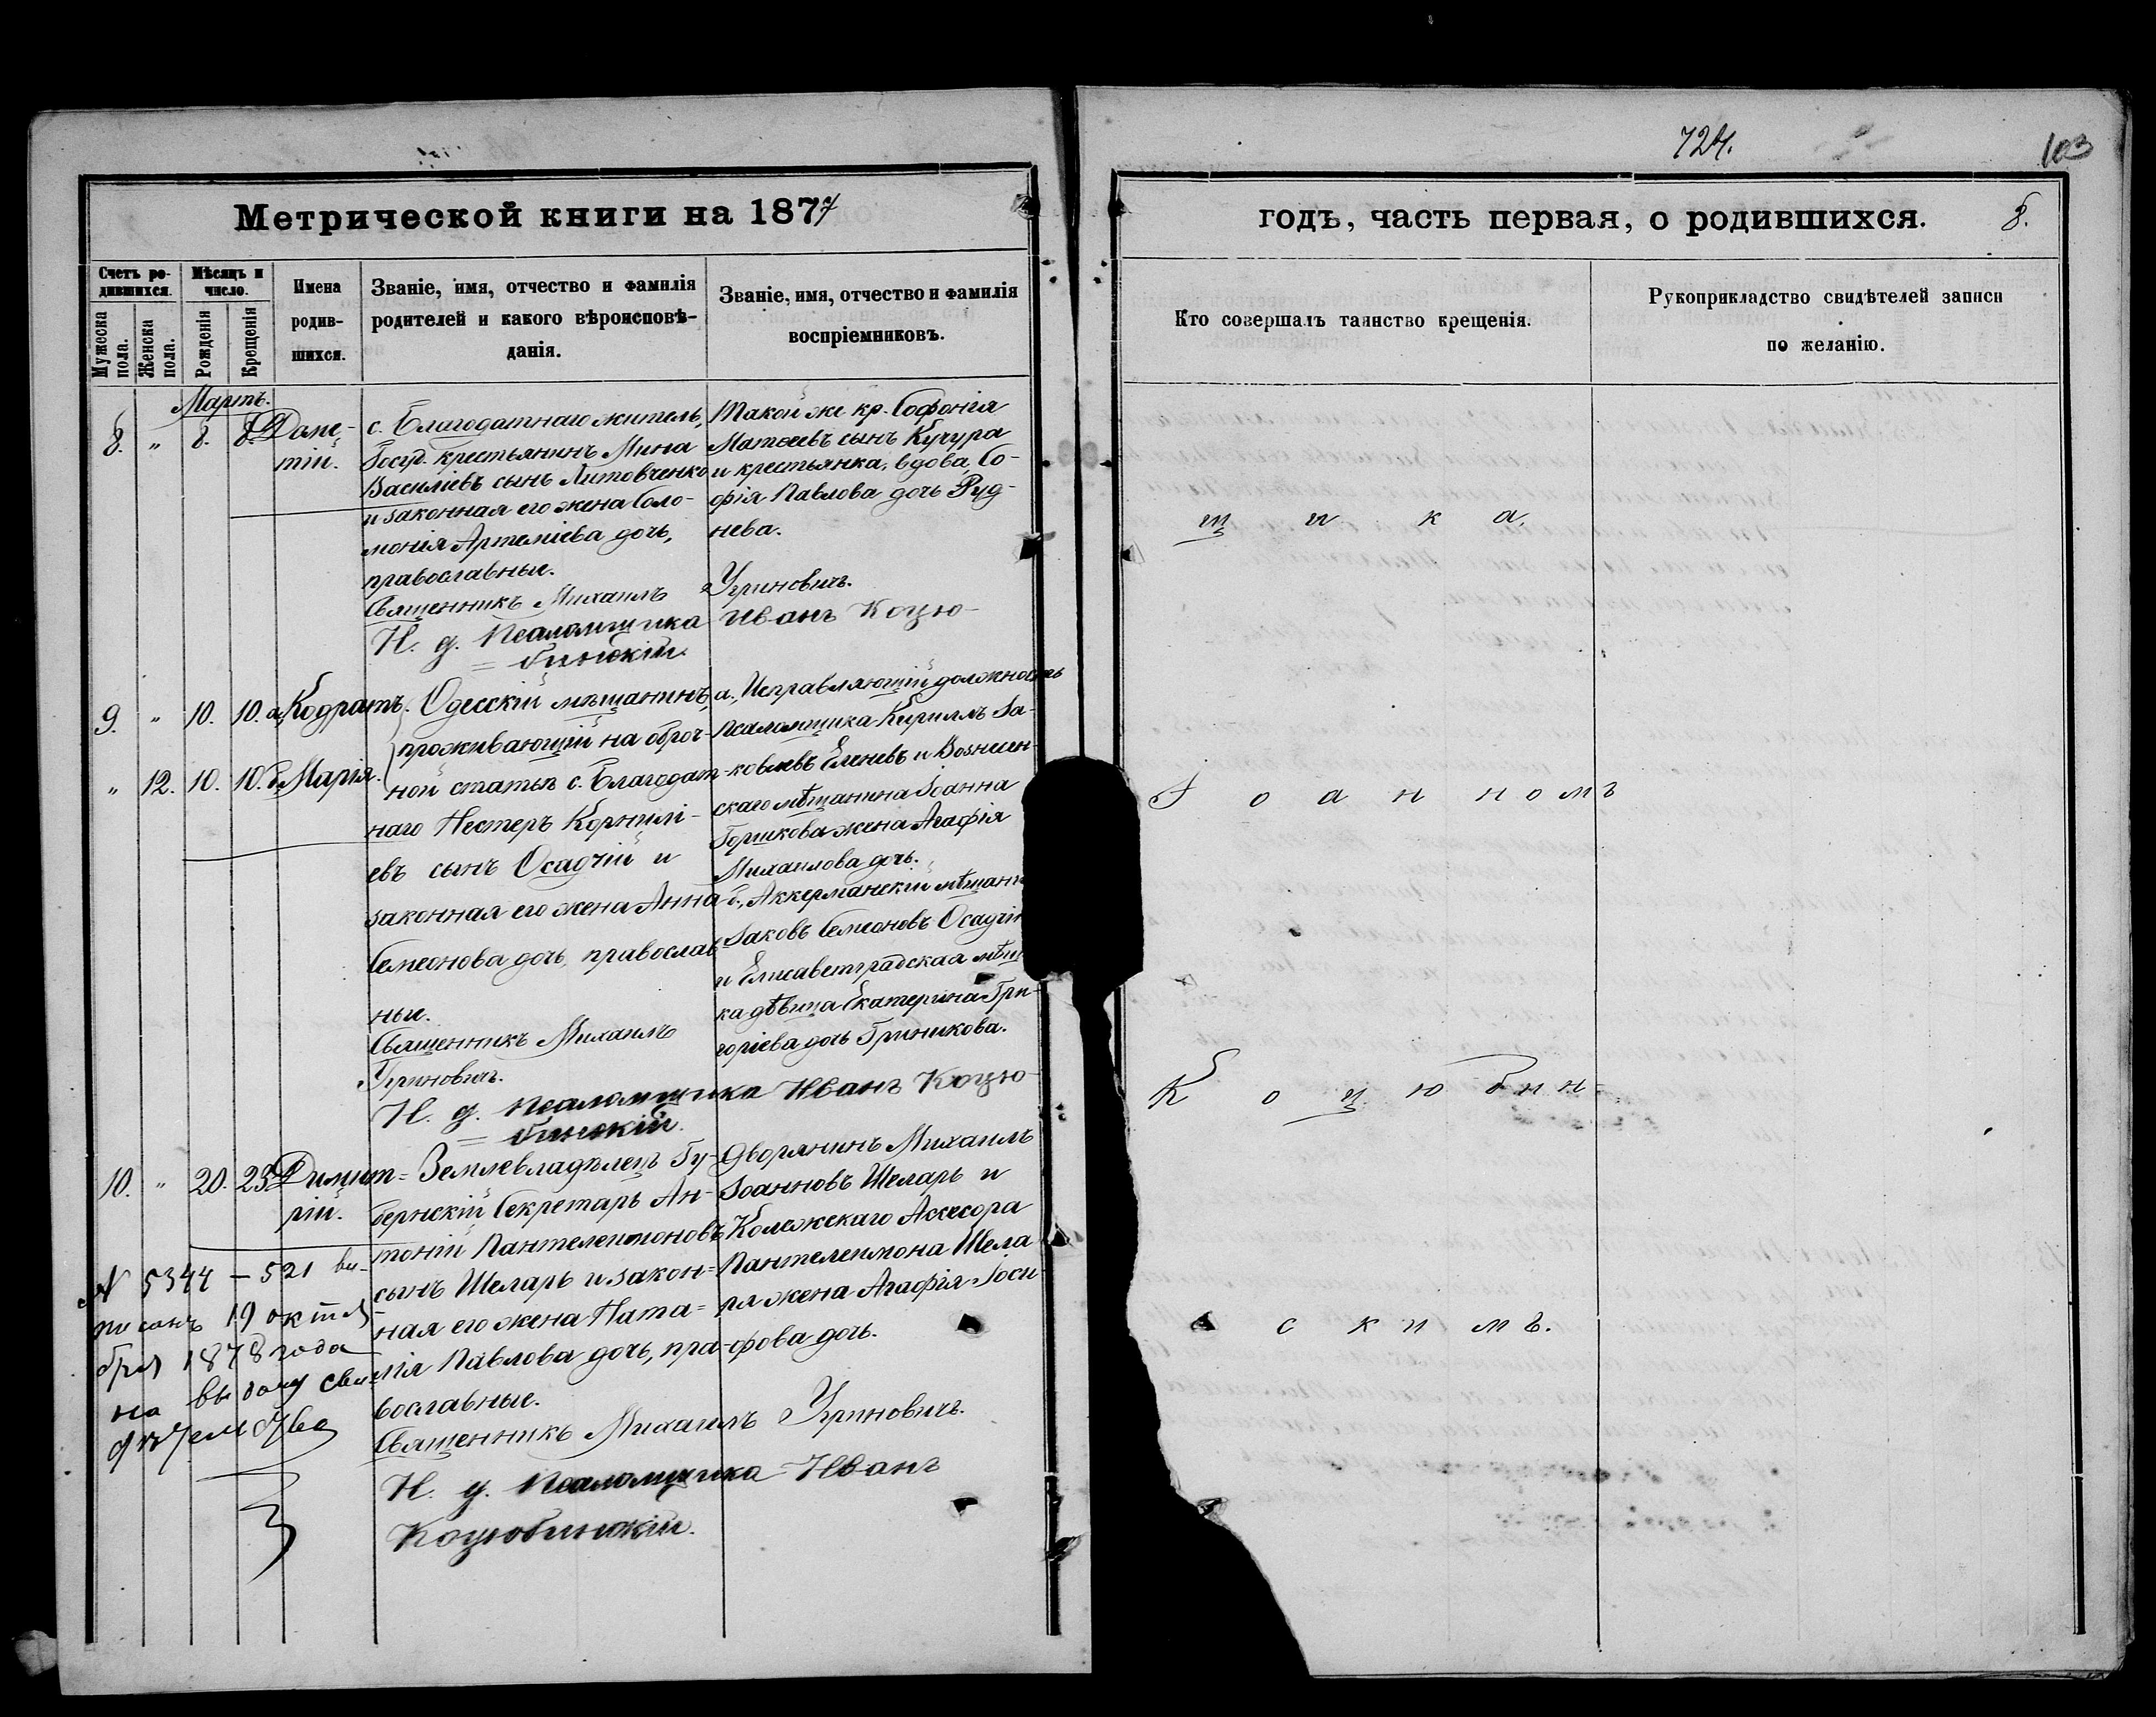 724.
103
Метрической книги на 1877
годъ, часть первая, о родившихся.
8.
Счетъ ро-
дившихся.
Мѣсяцъ и
число.
Мужеска
пола.
Женска
пола.
Рожденія
Крещенія
Имена
родив-
шихся.
Званіе, имя, отчество и фамилія
родителей и какого вѣроисповѣ-
данія.
Званіе, имя, отчество и фамилія
воспріемниковъ.
Кто совершалъ таинство крещенія.
Рукоприкладство свидѣтелей записи
по желанію.
Мартъ.
8. " 8. 8.
Доме-
тій.
с. Благодатнаго житель,
Госуд. крестьянинъ Мина
Василіевъ сынъ Литовченко
и законная его жена Соло-
монія Артеміева дочь,
православные.
Священникъ Михаилъ Угриновичъ.
И. д. Псаломщика Иванъ Коцю-
= бинскій.
Такой же кр. Софонія
Матѳеевъ сынъ Кучура
и крестьянка, вдова, Со-
фія Павлова дочь Руд-
нева.
щ и к а.
9. " 10. 10. а, Кодратъ.
" 12. 10. 10. б, Марія.
Одесскій мѣщанинъ,
проживающій на оброч-
ной статьѣ с. Благодат-
наго Нестеръ Корнилі-
евъ сынъ Осадчій и
законная его жена Анна
Семеонова дочь, православ-
ные.
Священникъ Михаилъ
Угриновичъ.
И. д. Псаломщика Иванъ Коцю-
= бинскій.
а, Исправляющій должность
Псаломщика Кириллъ Іа-
ковлевъ Еленевъ и Вознесен-
скаго мѣщанина Іоанна
Горшкова жена Агафія
Михаилова дочь.
б, Аккерманскій мѣщани
Іаковъ Семеоновъ Осадчі
и Елисаветградская мѣщ
ка дѣвица Екатерина Гри-
горіева дочь Гриникова.
І о а н н о м ъ
К о ц ю б и н-
10. " 20. 23.
Димит-
рій.
Землевладѣлецъ Гу-
бернскій Секретарь Ан-
тоній Пантелеимоновъ
сынъ Шеларь и закон-
ная его жена Ната-
лія Павлова дочь, пра-
вославные.
Священникъ Михаилъ Угриновичъ.
И. д. Псаломщика Иванъ
Коцюбинскій.
Дворянинъ Михаилъ
Іоанновъ Шеларь и
Колежскаго Ассесора
Пантелеимона Шела
ря жена Агафія Іоси-
фова дочь.
с к и м ъ.
№ 5344 – 521 вы-
писанъ 19 октя
бря 1878 года
на выдачу сви
дѣтельства